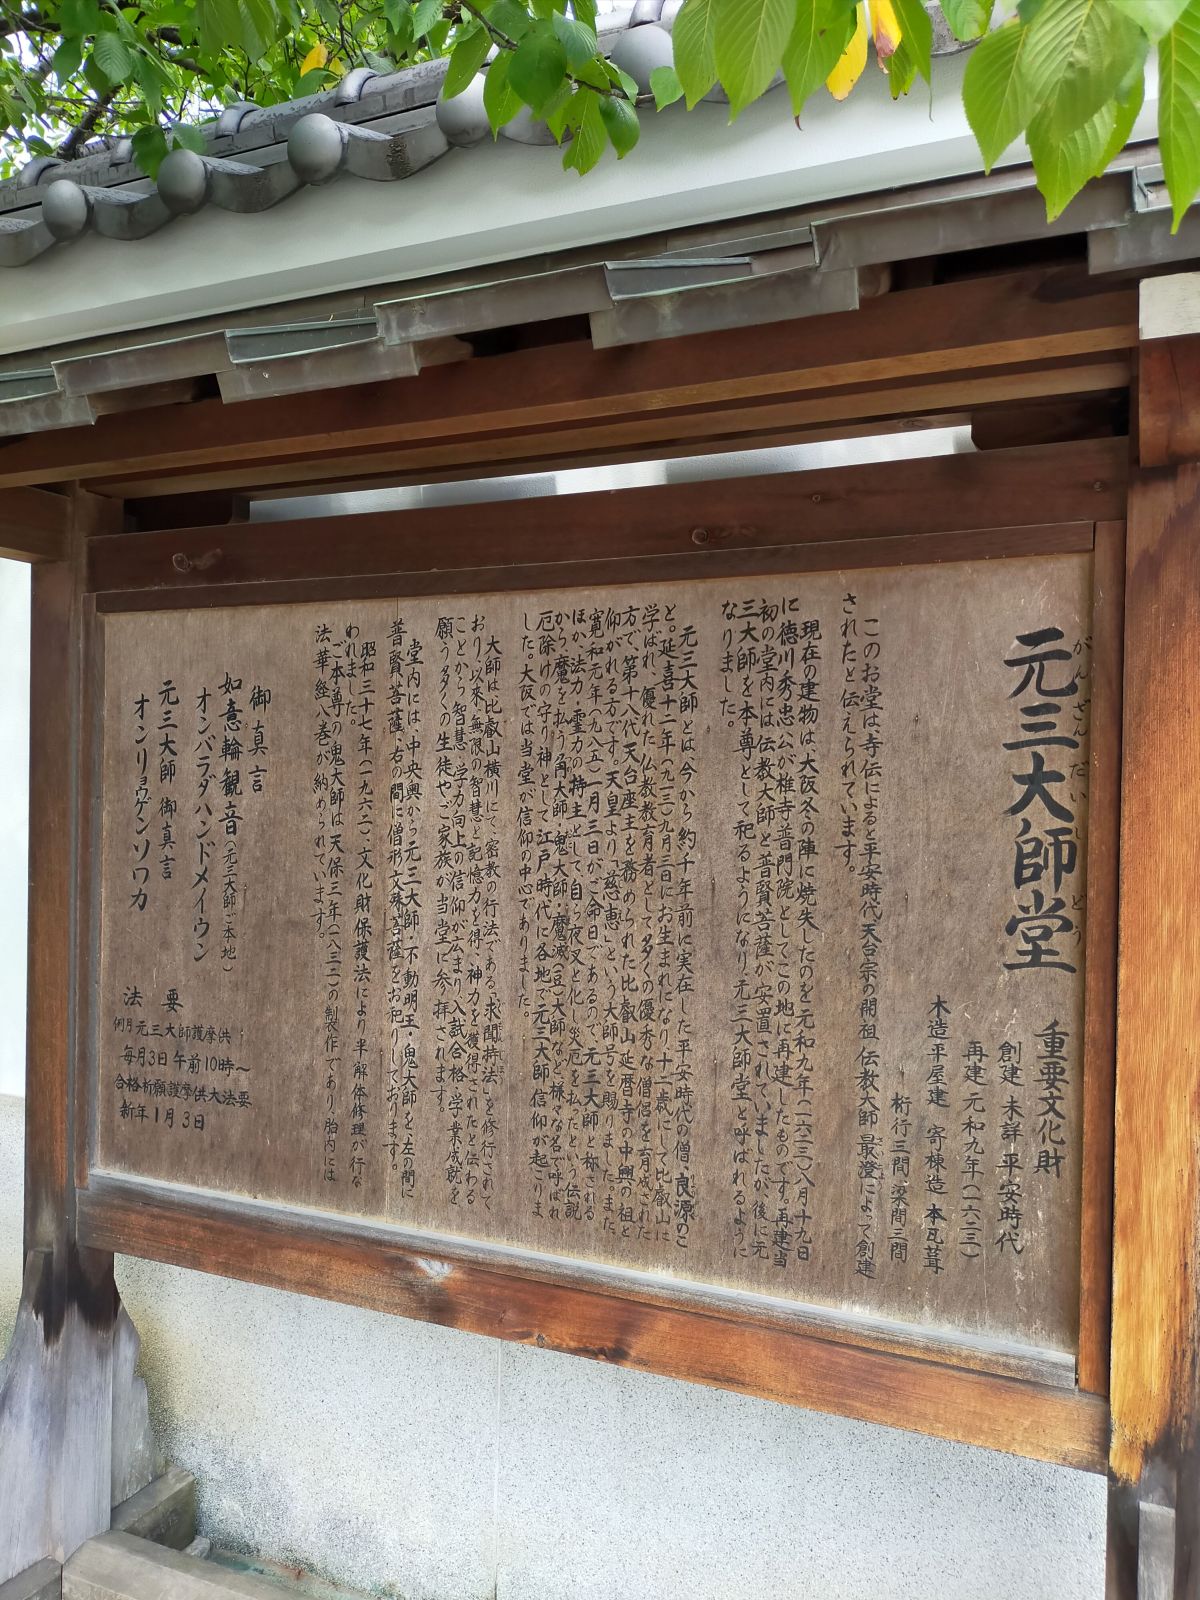 元三大師堂
がんざんだいしどう
重要文化財
創建 未詳 平安時代
再建 元和九年(一六二三)
木造平屋建 寄棟造 本瓦葺
桁行三間、梁間三間
このお堂は寺伝によると平安時代、天台宗の開祖、伝教大師 最澄によって創建
されたと伝えられています。
現在の建物は、大阪冬の陣に焼失したのを元和九年(一六二三)八月十九日
に徳川秀忠公が椎寺普門院としてこの地に再建したものです。再建当
初の堂内には伝教大師と普賢菩薩が安置されていましたが、後に元
三大師を本尊として祀るようになり、元三大師堂と呼ばれるように
なりました。
元三大師とは今から約千年前に実在した平安時代の僧、良源のこ
と。延喜十二年(九一三)九月三日にお生まれになり、十二歳にして比叡山に
学ばれ、優れた仏教教育者として多くの優秀な僧侶を育成された
方で、第十八代天台座主を務められた比叡山延暦寺の中興の祖と
仰がれる方です。天皇より「慈恵」という大師号を賜りました。また、
寛和元年(九八五)一月三日がご命日であるので、元三大師と称される
ほか、法力・霊力の持主として、自ら夜叉と化し災厄を払ったという伝説
から、魔を払う角大師・鬼大師・魔滅(豆)大師など、様々な名で呼ばれ
厄除けの守り神として江戸時代に各地で元三大師信仰が起こりま
した。大阪では当堂が信仰の中心でありました。
大師は、比叡山横川にて、密教の行法である「求聞持法」を修行されて
おり、以来、無限の智慧と記憶力を得、神力を獲得されたと伝わる
ことから智慧・学力向上の信仰が広まり、入試合格・学業成就を
願う多くの生徒やご家族が当堂に参り拝されます。
堂内には、中央奥から元三大師・不動明王・鬼大師を、左の間に
普賢菩薩、右の間に僧形文殊菩薩をお祀りしております。
昭和三十七年(一九六二)、文化財保護法により半解体修理が行な
われました。
ご本尊の鬼大師は天保三年(一八三二)の制作であり、胎内には
法華経八巻が納められています。
御真言
如意輪観音(元三大師ご本地)
オンバラダハンドメイウン
元三大師 御真言
オンリョウゲンソワカ
法 要
例月元三大師護摩供
毎月3日 午前10時〜
合格祈願護摩供大法要
新年1月3日